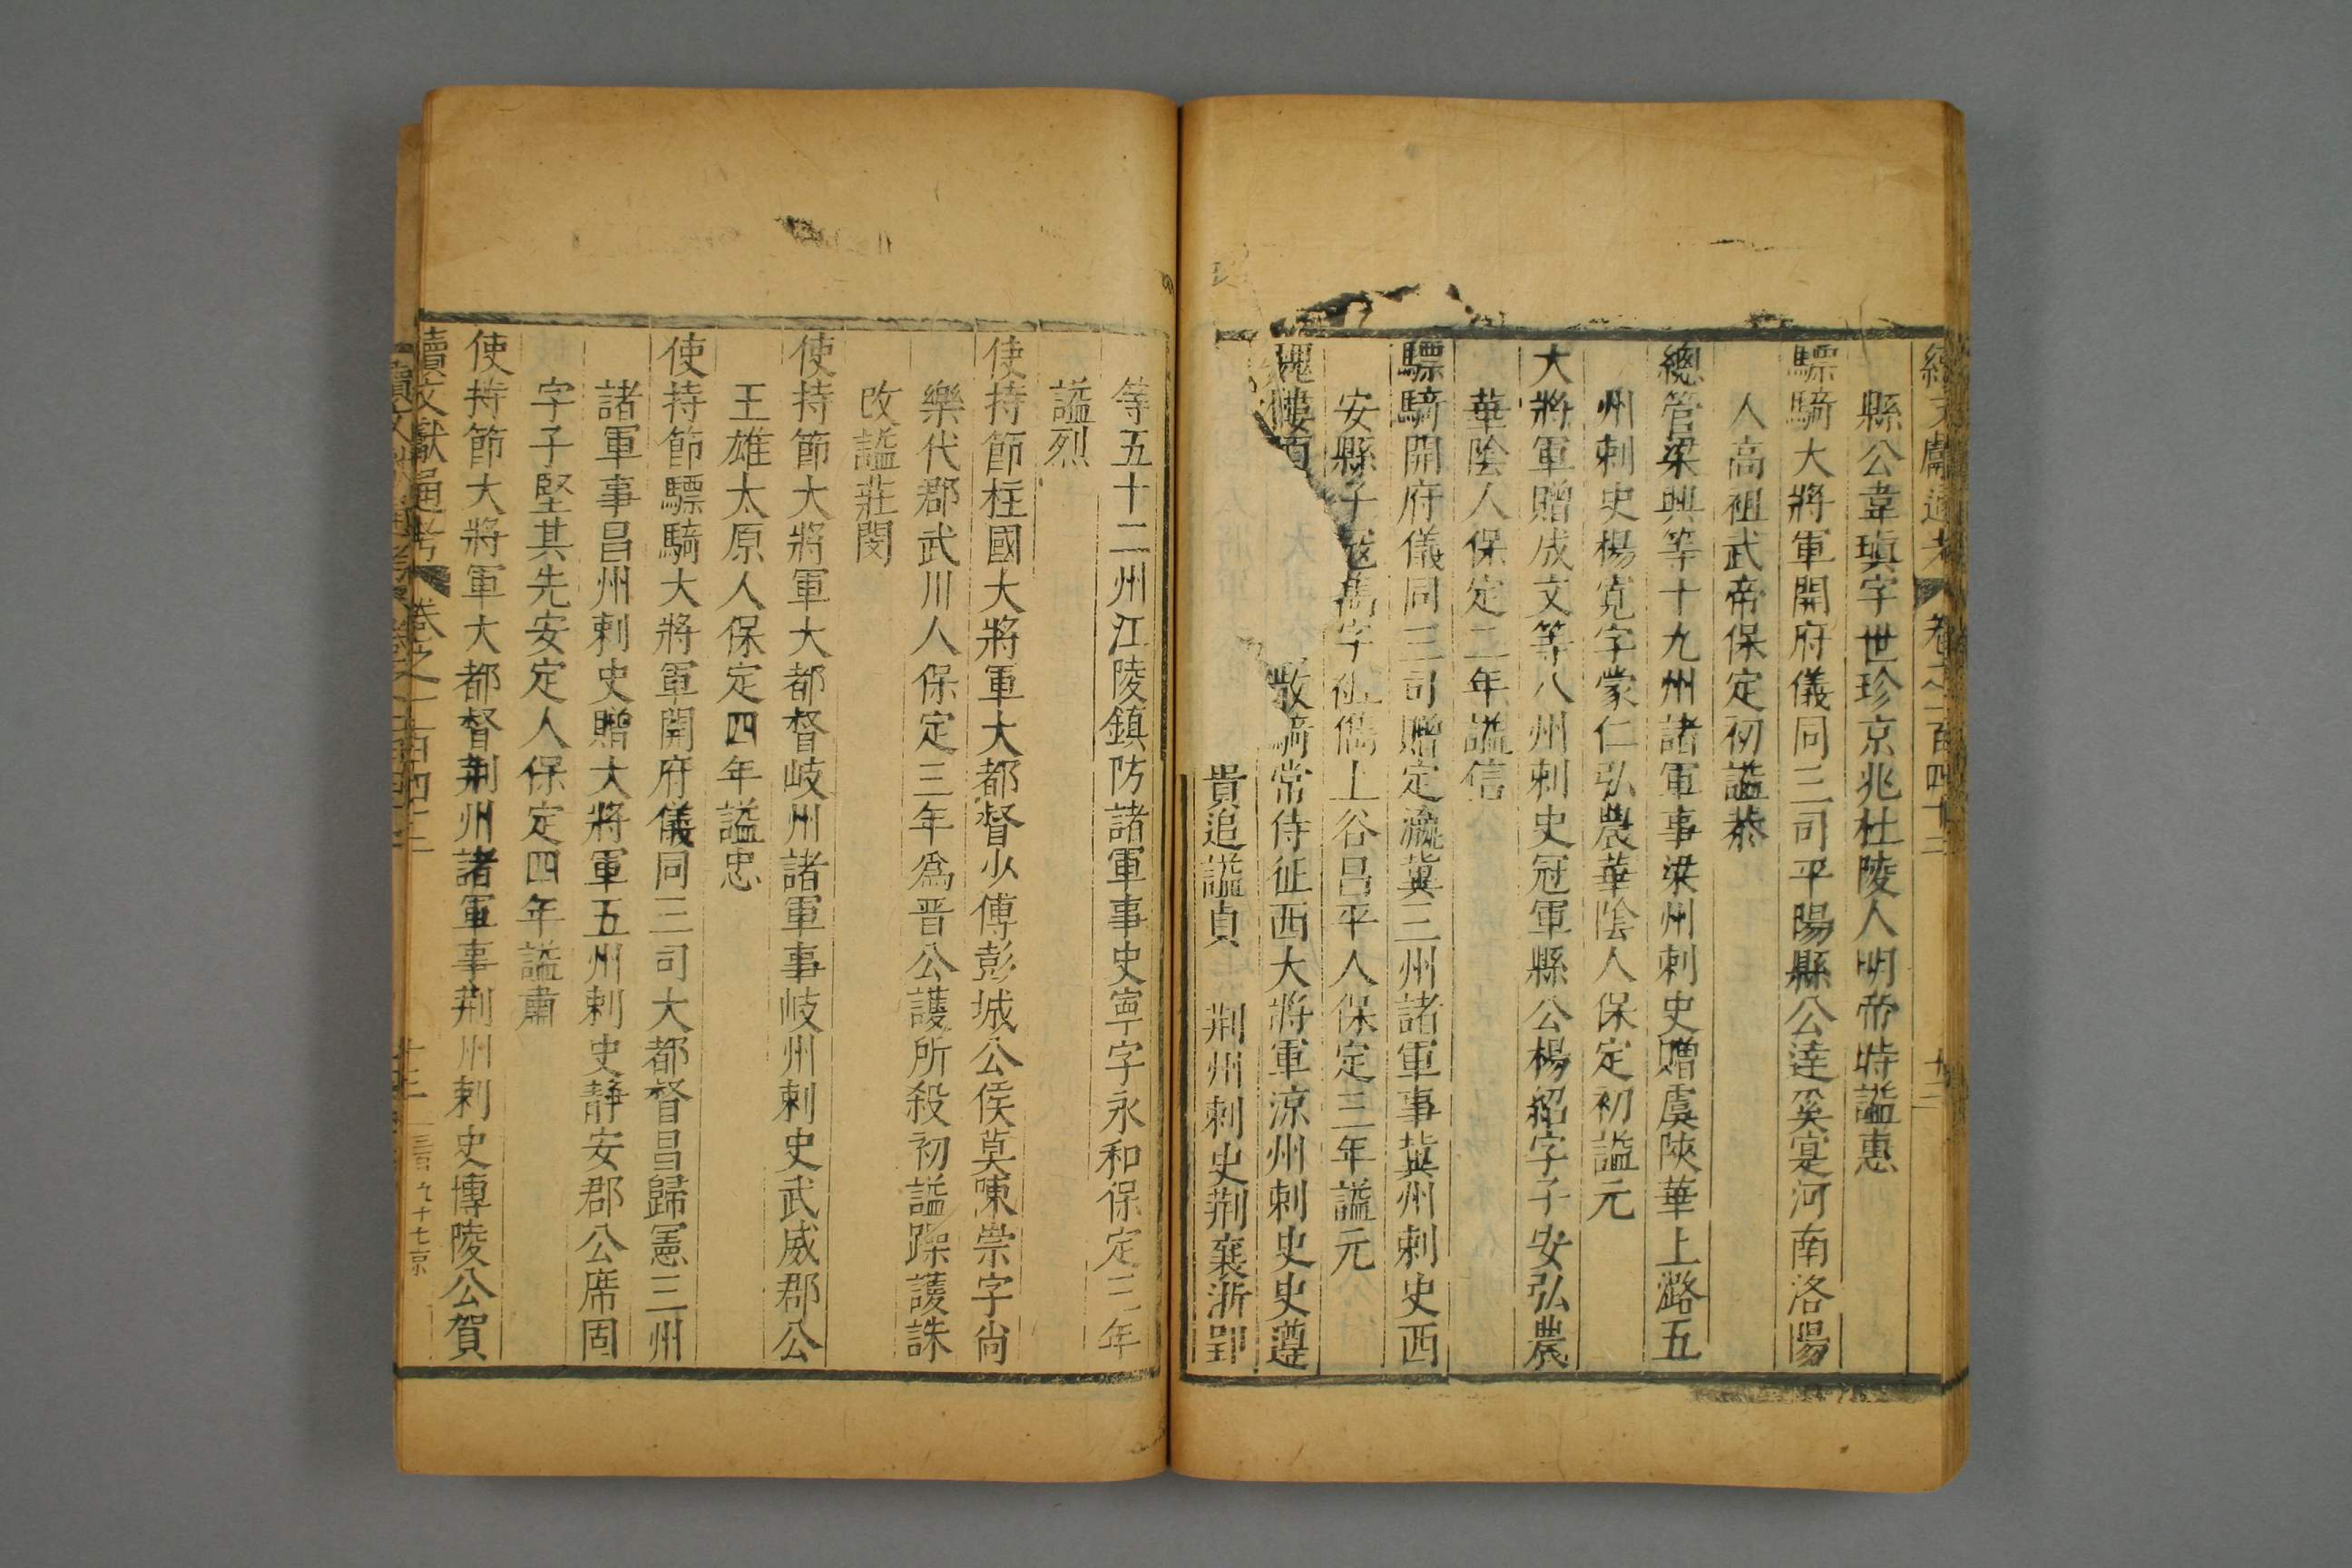 續文獻通考 卷之一百四十三 十三
縣公韋瑱字世珍京兆杜陵人明帝時謚惠
驃騎大將軍開府儀同三司平陽縣公達奚寔河南洛陽
人高祖武帝保定初謚恭
總管梁興等十九州諸軍事梁州刺史贈虞陝華上潞五
州刺史楊寬字蒙仁弘農華陰人保定初謚元
大將軍贈成文等八州刺史冠軍縣公楊紹字子安弘農
華陰人保定二年謚信
驃騎開府儀同三司贈定瀛冀三州諸軍事冀州刺史西
安縣子 字 儁上谷昌平人保定三年謚元
散騎常侍征西大將軍涼州刺史史遵
貴追謚貞 荆州刺史荆襄淅郢
等五十二州江陵鎮防諸軍事史寧字永和保定三年
謚烈
使持節柱國大將軍大都督少傅彭城公侯莫陳崇字尚
樂代郡武川人保定三年爲晋公護所殺初謚躁護誅
改謚莊閔
使持節大將軍大都督岐州諸軍事岐州刺史武威郡公
王雄太原人保定四年謚忠
使持節驃騎大將軍開府儀同三司大都督昌歸憲三州
諸軍事昌州刺史贈大將軍五州刺史靜安郡公席固
字子堅其先安定人保定四年謚肅
使持節大將軍大都督荆州諸軍事荆州刺史博陵公賀
續文獻通考 卷之一百四十三 十三 三百九十七京